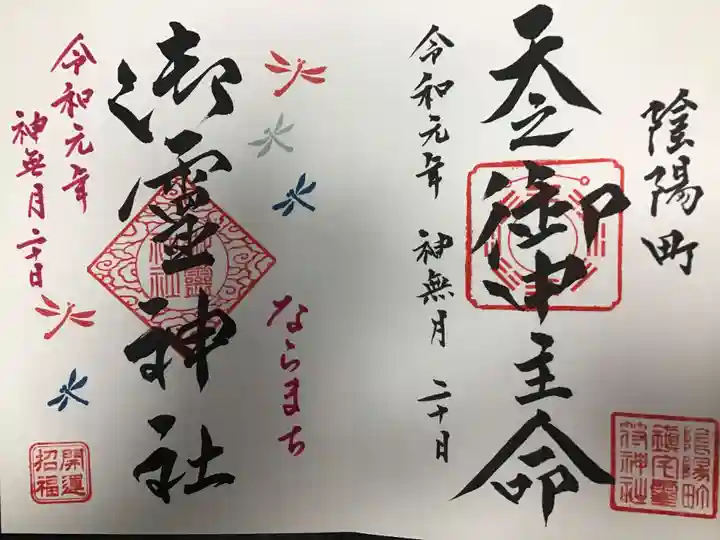 陰陽町
天之御中主命
令和元年 神無月 二十日
陰陽町
鎮宅霊
符神社
ならまち
御霊神社
令和元年
神無月 二十日
開運
招福